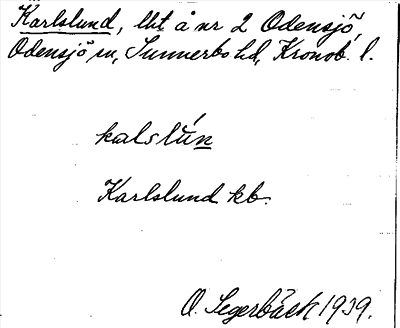 Karlslund, lht å nr 2 Odensjö,
Odensjö sn, Sunnerbo hd, Kronob. l.
kalslún
Karlslund kb.
O. Segerbäck 1939.